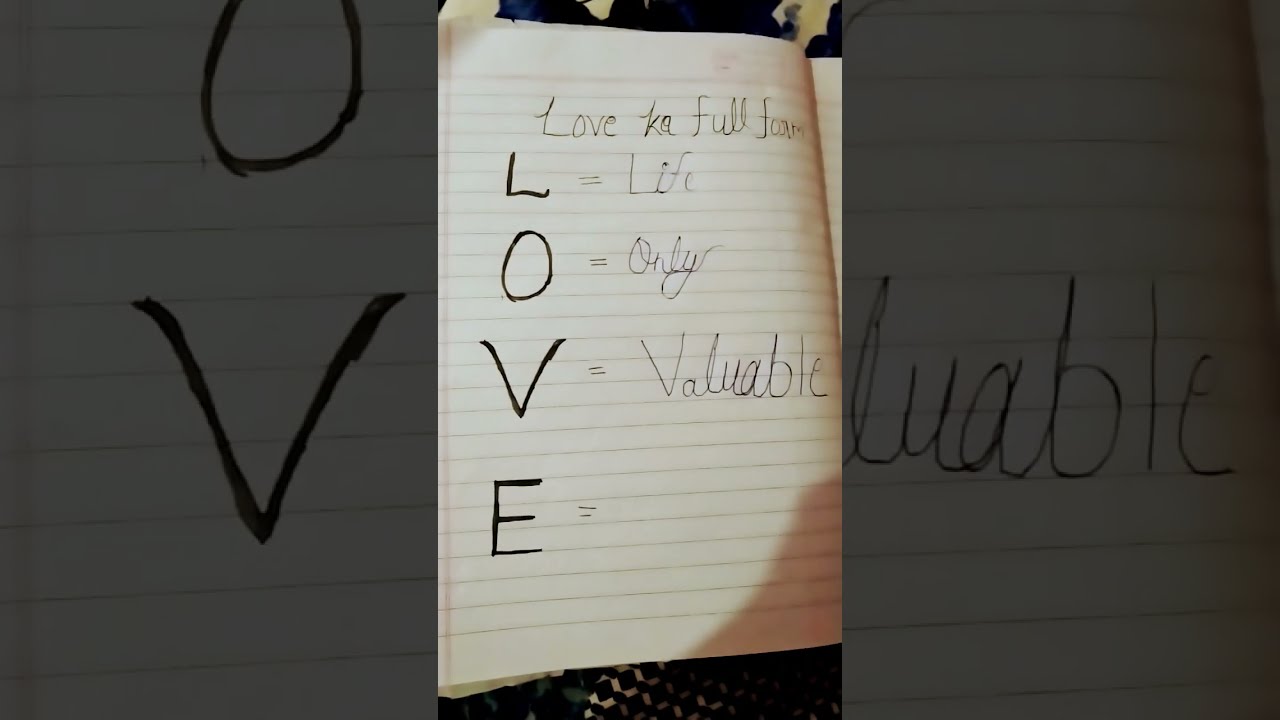 Love ka full form
L = Life
O = Only
V = Valuable
E =